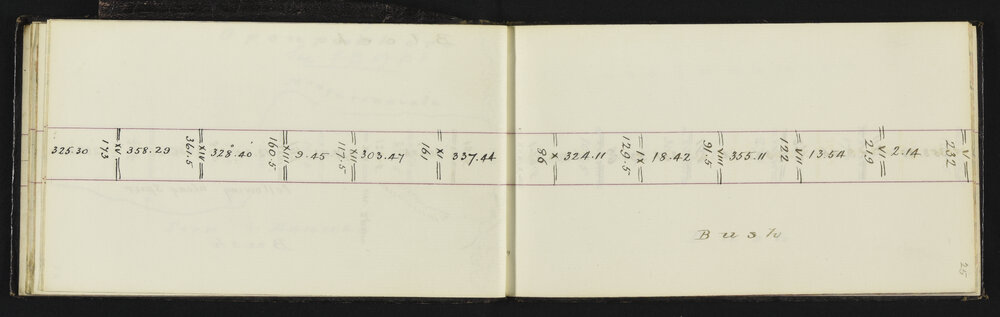 325.30 173 XV 358.29 361.5 XIV 328°.40 160.5 XIII 9.45 117.5 XII 303.47 161 XI 337.44
96 X 324.11 129.5 IX 18.42 91.5 VIII 355.11 122 VII 13.54 219 VI 2.14 232 V
Bush
25